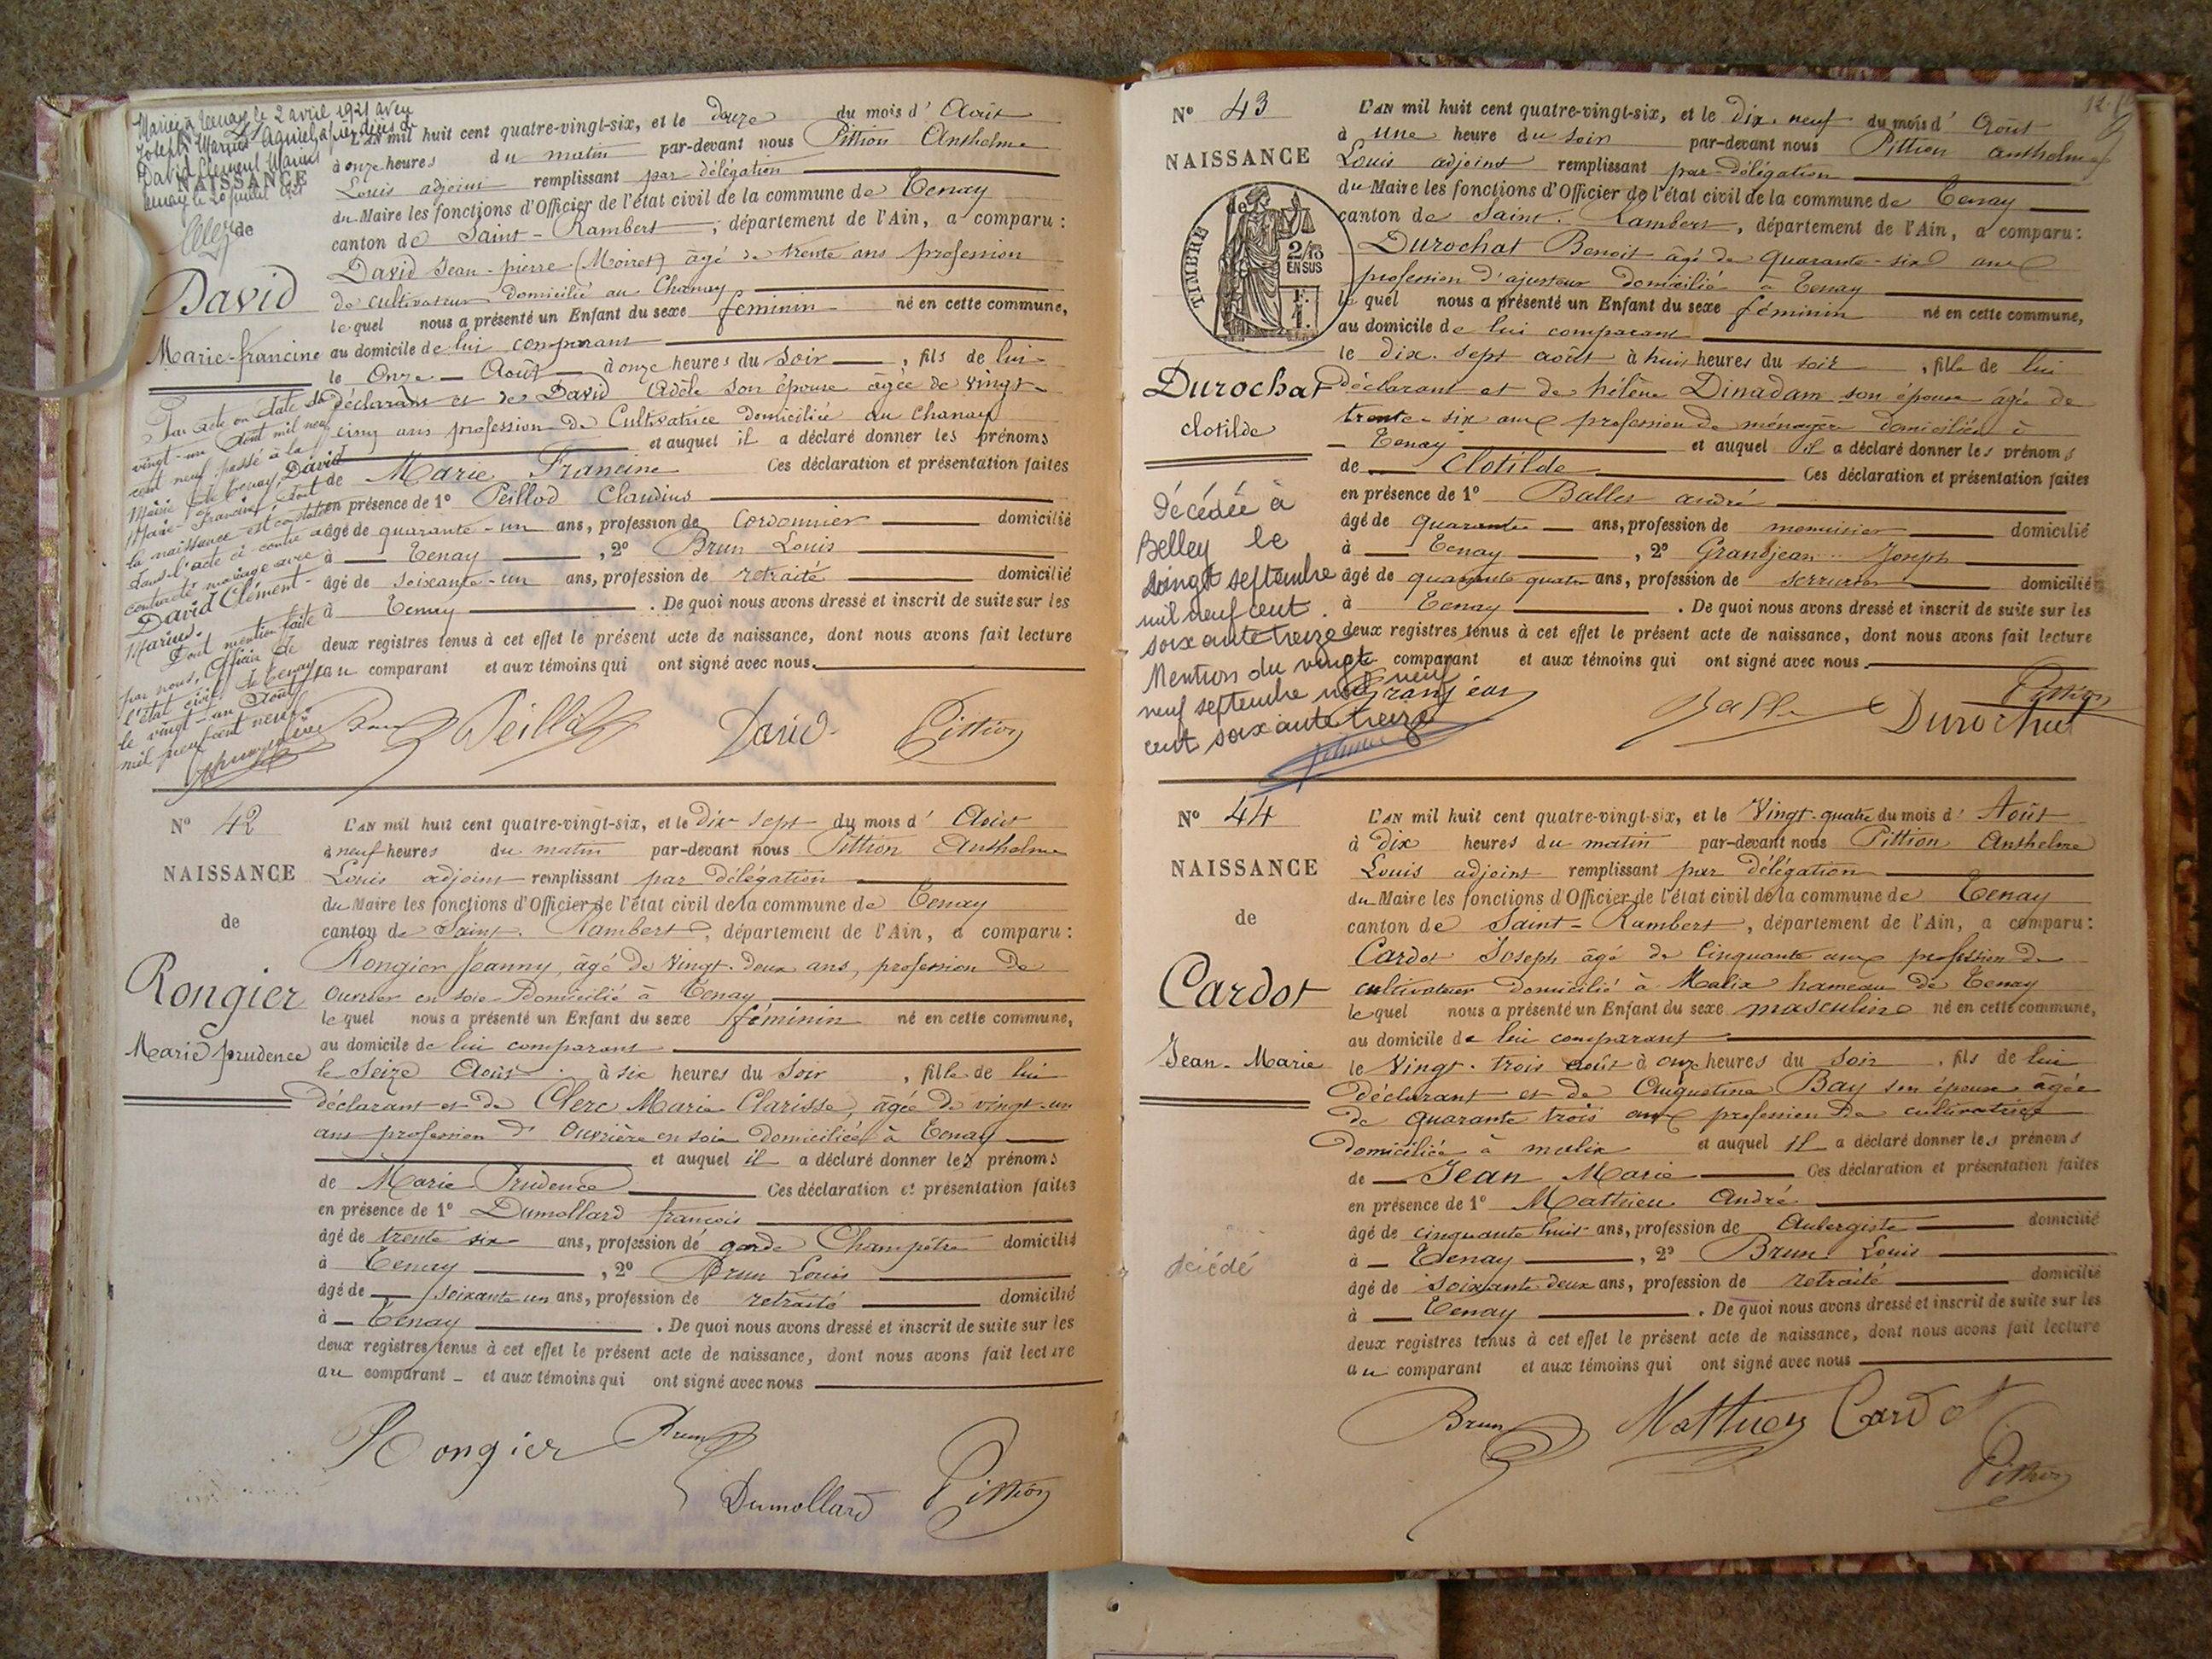 Marié à Tenay le 2 avril 1921 avec
Joseph Marius
David Clément Marius
NAISSANCE
Tenay le 20 juillet
de
David
Marie-francine
Par acte en date du
vingt-un Août mil neuf
cent neuf passé à la
Mairie de Tenay, David
Marie-Francine, dont
la naissance est constatée
dans l'acte ci-contre a
contracté mariage avec
David Clément-
Marius.
Dont mention faite
par nous, Officier de
l'état civil de Tenay,
le vingt-un Août
mil neuf cent neuf.
L'AN mil huit cent quatre-vingt-six, et le douze du mois d' Août
à onze heures du matin par-devant nous Pittion Anthelme
Louis adjoint remplissant par délégation
du Maire les fonctions d'Officier de l'état civil de la commune de Tenay
canton de Saint-Rambert, département de l'Ain, a comparu :
David Jean-pierre (Moiret) âgé de trente ans profession
de cultivateur domicilié au Chanay
lequel nous a présenté un Enfant du sexe féminin né en cette commune,
au domicile de lui comparant
le Onze Août à onze heures du Soir, fils de lui
déclarant et de David Adèle son épouse âgée de vingt-
cinq ans profession de Cultivatrice domiciliée au Chanay
et auquel il a déclaré donner les prénoms
de Marie Francine Ces déclaration et présentation faites
en présence de 1° Peillod Claudius
âgé de quarante-un ans, profession de Cordonnier domicilié
à Tenay, 2° Brun Louis
âgé de soixante-un ans, profession de retraité domicilié
à Tenay. De quoi nous avons dressé et inscrit de suite sur les
deux registres tenus à cet effet le présent acte de naissance, dont nous avons fait lecture
au comparant et aux témoins qui ont signé avec nous.
Brun Peillod David Pittion
N° 42
NAISSANCE
de
Rongier
Marie prudence
L'AN mil huit cent quatre-vingt-six, et le Dix Sept du mois d' Août
à neuf heures du matin par-devant nous Pittion Anthelme
Louis adjoint remplissant par délégation
du Maire les fonctions d'Officier de l'état civil de la commune de Tenay
canton de Saint-Rambert, département de l'Ain, a comparu :
Rongier Jeanny, âgé de Vingt-deux ans, profession de
Ouvrier en soie Domicilié à Tenay
lequel nous a présenté un Enfant du sexe féminin né en cette commune,
au domicile de lui comparant
le Seize Août à six heures du Soir, fille de lui
déclarant et de Clerc Marie Clarisse, âgée de vingt-un
ans profession d'Ouvrière en soie Domiciliée à Tenay
et auquel il a déclaré donner les prénoms
de Marie Prudence Ces déclaration et présentation faites
en présence de 1° Dumollard françois
âgé de trente six ans, profession de garde Champêtre domicilié
à Tenay, 2° Brun Louis
âgé de soixante un ans, profession de retraité domicilié
à Tenay. De quoi nous avons dressé et inscrit de suite sur les
deux registres tenus à cet effet le présent acte de naissance, dont nous avons fait lecture
au comparant et aux témoins qui ont signé avec nous
Rongier Brun
Dumollard Pittion
N° 43
NAISSANCE
de
TIMBRE
2/10
EN SUS
Durochat
clotilde
Décédée à
Belley le
vingt septembre
mil neuf cent
soixante treize
Mention du vingt
neuf septembre mil neuf
cent soixante treize
L'AN mil huit cent quatre-vingt-six, et le dix-neuf du mois d' Août
à une heure du soir par-devant nous Pittion anthelme
Louis adjoint remplissant par délégation
du Maire les fonctions d'Officier de l'état civil de la commune de Tenay
canton de Saint-Rambert, département de l'Ain, a comparu :
Durochat Benoit âgé de quarante-six ans
profession d'ajusteur domicilié à Tenay
lequel nous a présenté un Enfant du sexe féminin né en cette commune,
au domicile de lui comparant
le dix-sept août à huit heures du soir, fille de lui
déclarant et de hélène Dinadam son épouse âgée de
trente-six ans profession de ménagère domiciliée à
Tenay et auquel il a déclaré donner les prénoms
de Clotilde Ces déclaration et présentation faites
en présence de 1° Ballet andré
âgé de quarante ans, profession de menuisier domicilié
à Tenay, 2° Grandjean Joseph
âgé de quarante quatre ans, profession de serrurier domicilié
à Tenay. De quoi nous avons dressé et inscrit de suite sur les
deux registres tenus à cet effet le présent acte de naissance, dont nous avons fait lecture
comparant et aux témoins qui ont signé avec nous.
Granjean Durochat Pittion
N° 44
NAISSANCE
de
Cardot
Jean-Marie
décédé
L'AN mil huit cent quatre-vingt-six, et le Vingt-quatre du mois d' Août
à dix heures du matin par-devant nous Pittion Anthelme
Louis adjoint remplissant par délégation
du Maire les fonctions d'Officier de l'état civil de la commune de Tenay
canton de Saint-Rambert, département de l'Ain, a comparu :
Cardot Joseph âgé de Cinquante ans profession de
cultivateur domicilié à Malix hameau de Tenay
lequel nous a présenté un Enfant du sexe masculin né en cette commune,
au domicile de lui comparant
le Vingt-trois août à onze heures du Soir, fils de lui
déclarant et de Augustine Bay son épouse âgée
de quarante trois ans profession de cultivatrice
domiciliée à malix et auquel il a déclaré donner les prénoms
de Jean Marie Ces déclaration et présentation faites
en présence de 1° Mathieu André
âgé de cinquante huit ans, profession de Aubergiste domicilié
à Tenay, 2° Brun Louis
âgé de soixante deux ans, profession de retraité domicilié
à Tenay. De quoi nous avons dressé et inscrit de suite sur les
deux registres tenus à cet effet le présent acte de naissance, dont nous avons fait lecture
au comparant et aux témoins qui ont signé avec nous
Brun Cardot
Pittion